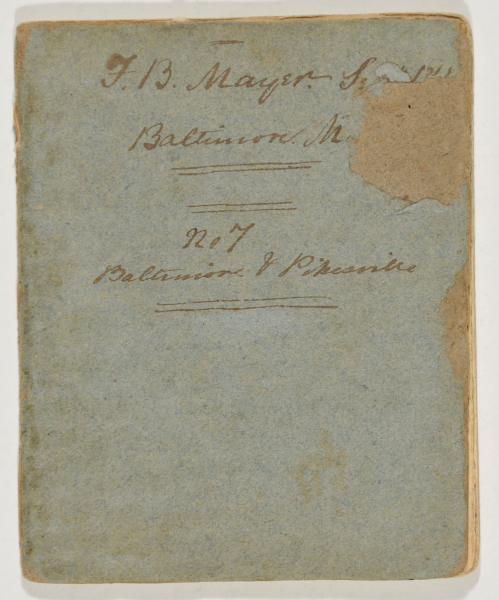 F. B. Mayer.
Baltimore. M
No 7
Baltimore & Pikesville